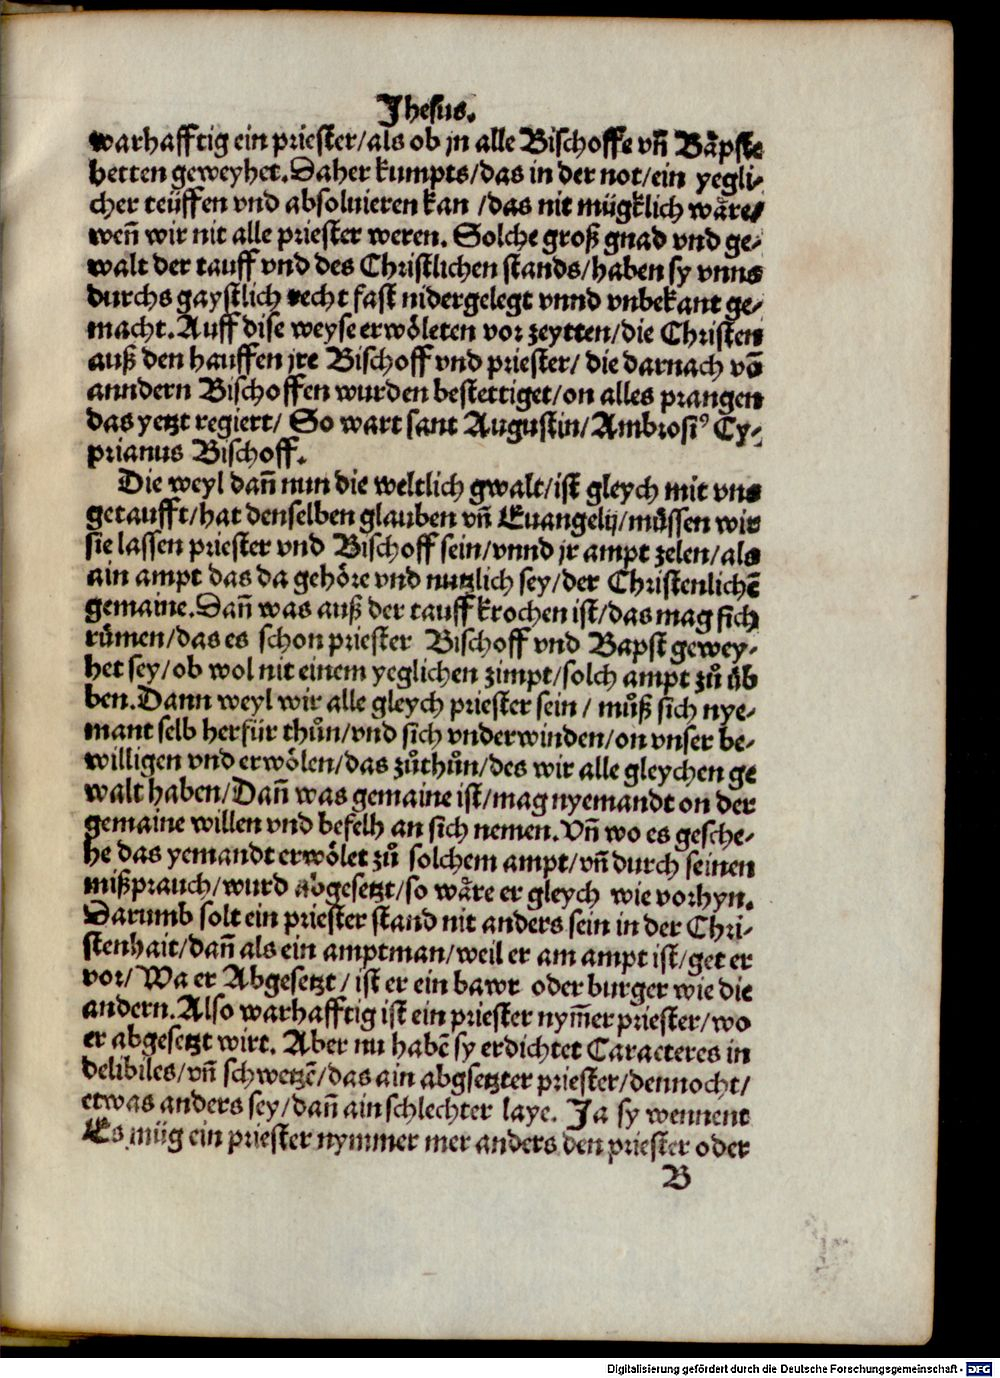 Jhesus.
warhafftig ein priester/als ob jn alle Bischoffe vñ Båpste
hetten geweyhet. Daher kumpts/das in der not/ein yegli-
cher teüffen vnd absoluieren kan /das nit mügklich wåre/
weñ wir nit alle priester weren. Solche groß gnad vnd ge-
walt der tauff vnd des Christlichen stands/haben sy vnns
durchs gaystlich recht fast nidergelegt vnnd vnbekant ge-
macht. Auff dise weyse erwöleten vor zeytten/die Christen
auß den hauffen jre Bischoff vnd priester/ die darnach võ
anndern Bischoffen wurden bestettiget/on alles prangen
das yetzt regiert/ So wart sant Augustin/Ambrosiꝰ Cy-
prianus Bischoff.
Die weyl dañ nun die weltlich gwalt/ist gleych mit vns
getaufft/hat denselben glauben vñ Euangelij/müssen wir
sie lassen priester vnd Bischoff sein/vnnd jr ampt zelen/als
ain ampt das da gehöre vnd nutzlich sey/der Christenlichẽ
gemaine. Dañ was auß der tauff krochen ist/das mag sich
rümen/das es schon priester Bischoff vnd Bapst gewey-
het sey/ob wol nit einem yeglichen zimpt/solch ampt zů üb
ben. Dann weyl wir alle gleych priester sein / můß sich nye-
mant selb herfür thůn/vnd sich vnderwinden/on vnser be-
willigen vnd erwölen/das zůthůn/des wir alle gleychen ge
walt haben/Dañ was gemaine ist/mag nyemandt on der
gemaine willen vnd befelh an sich nemen. Vñ wo es gesche-
he das yemandt erwölet zů solchem ampt/vñ durch seinen
mißprauch/wurd abgesetzt/so wåre er gleych wie vorhyn.
Darumb solt ein priester stand nit anders sein in der Chri-
stenhait/dañ als ein amptman/weil er am ampt ist/get er
vor/ Wa er Abgesetzt / ist er ein bawr oder burger wie die
andern. Also warhafftig ist ein priester nym̃er priester/wo
er abgesetzt wirt. Aber nu habẽ sy erdichtet Caracteres in
delibiles/vñ schwetzẽ/das ain abgsetzter priester/dennocht/
etwas anders sey/dañ ain schlechter laye. Ja sy wennent
Es müg ein priester nymmer mer anders den priester oder
B
Digitalisierung gefördert durch die Deutsche Forschungsgemeinschaft - DFG